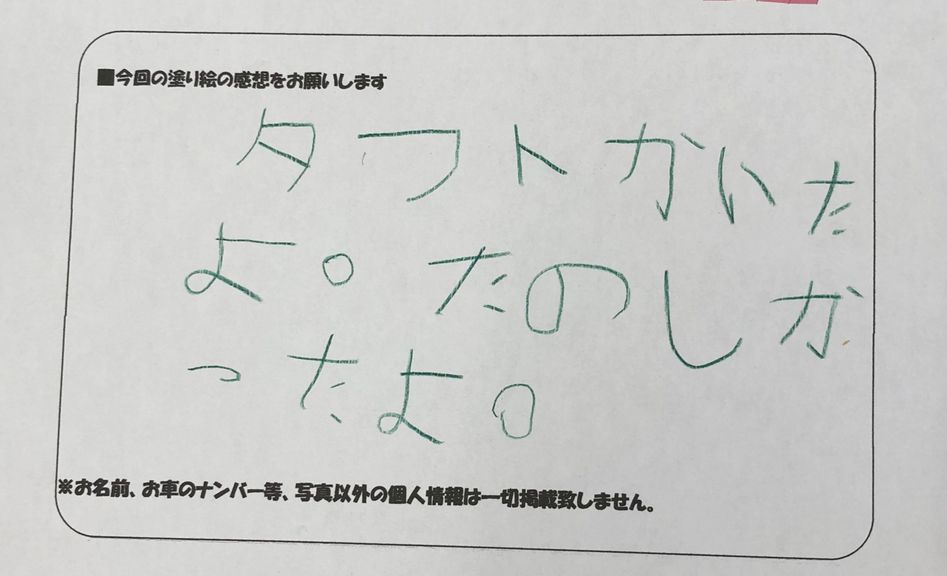 ■今回の塗り絵の感想をお願いします
タフトかいた
よ。たのしか
ったよ。
※お名前、お車のナンバー等、写真以外の個人情報は一切掲載致しません。